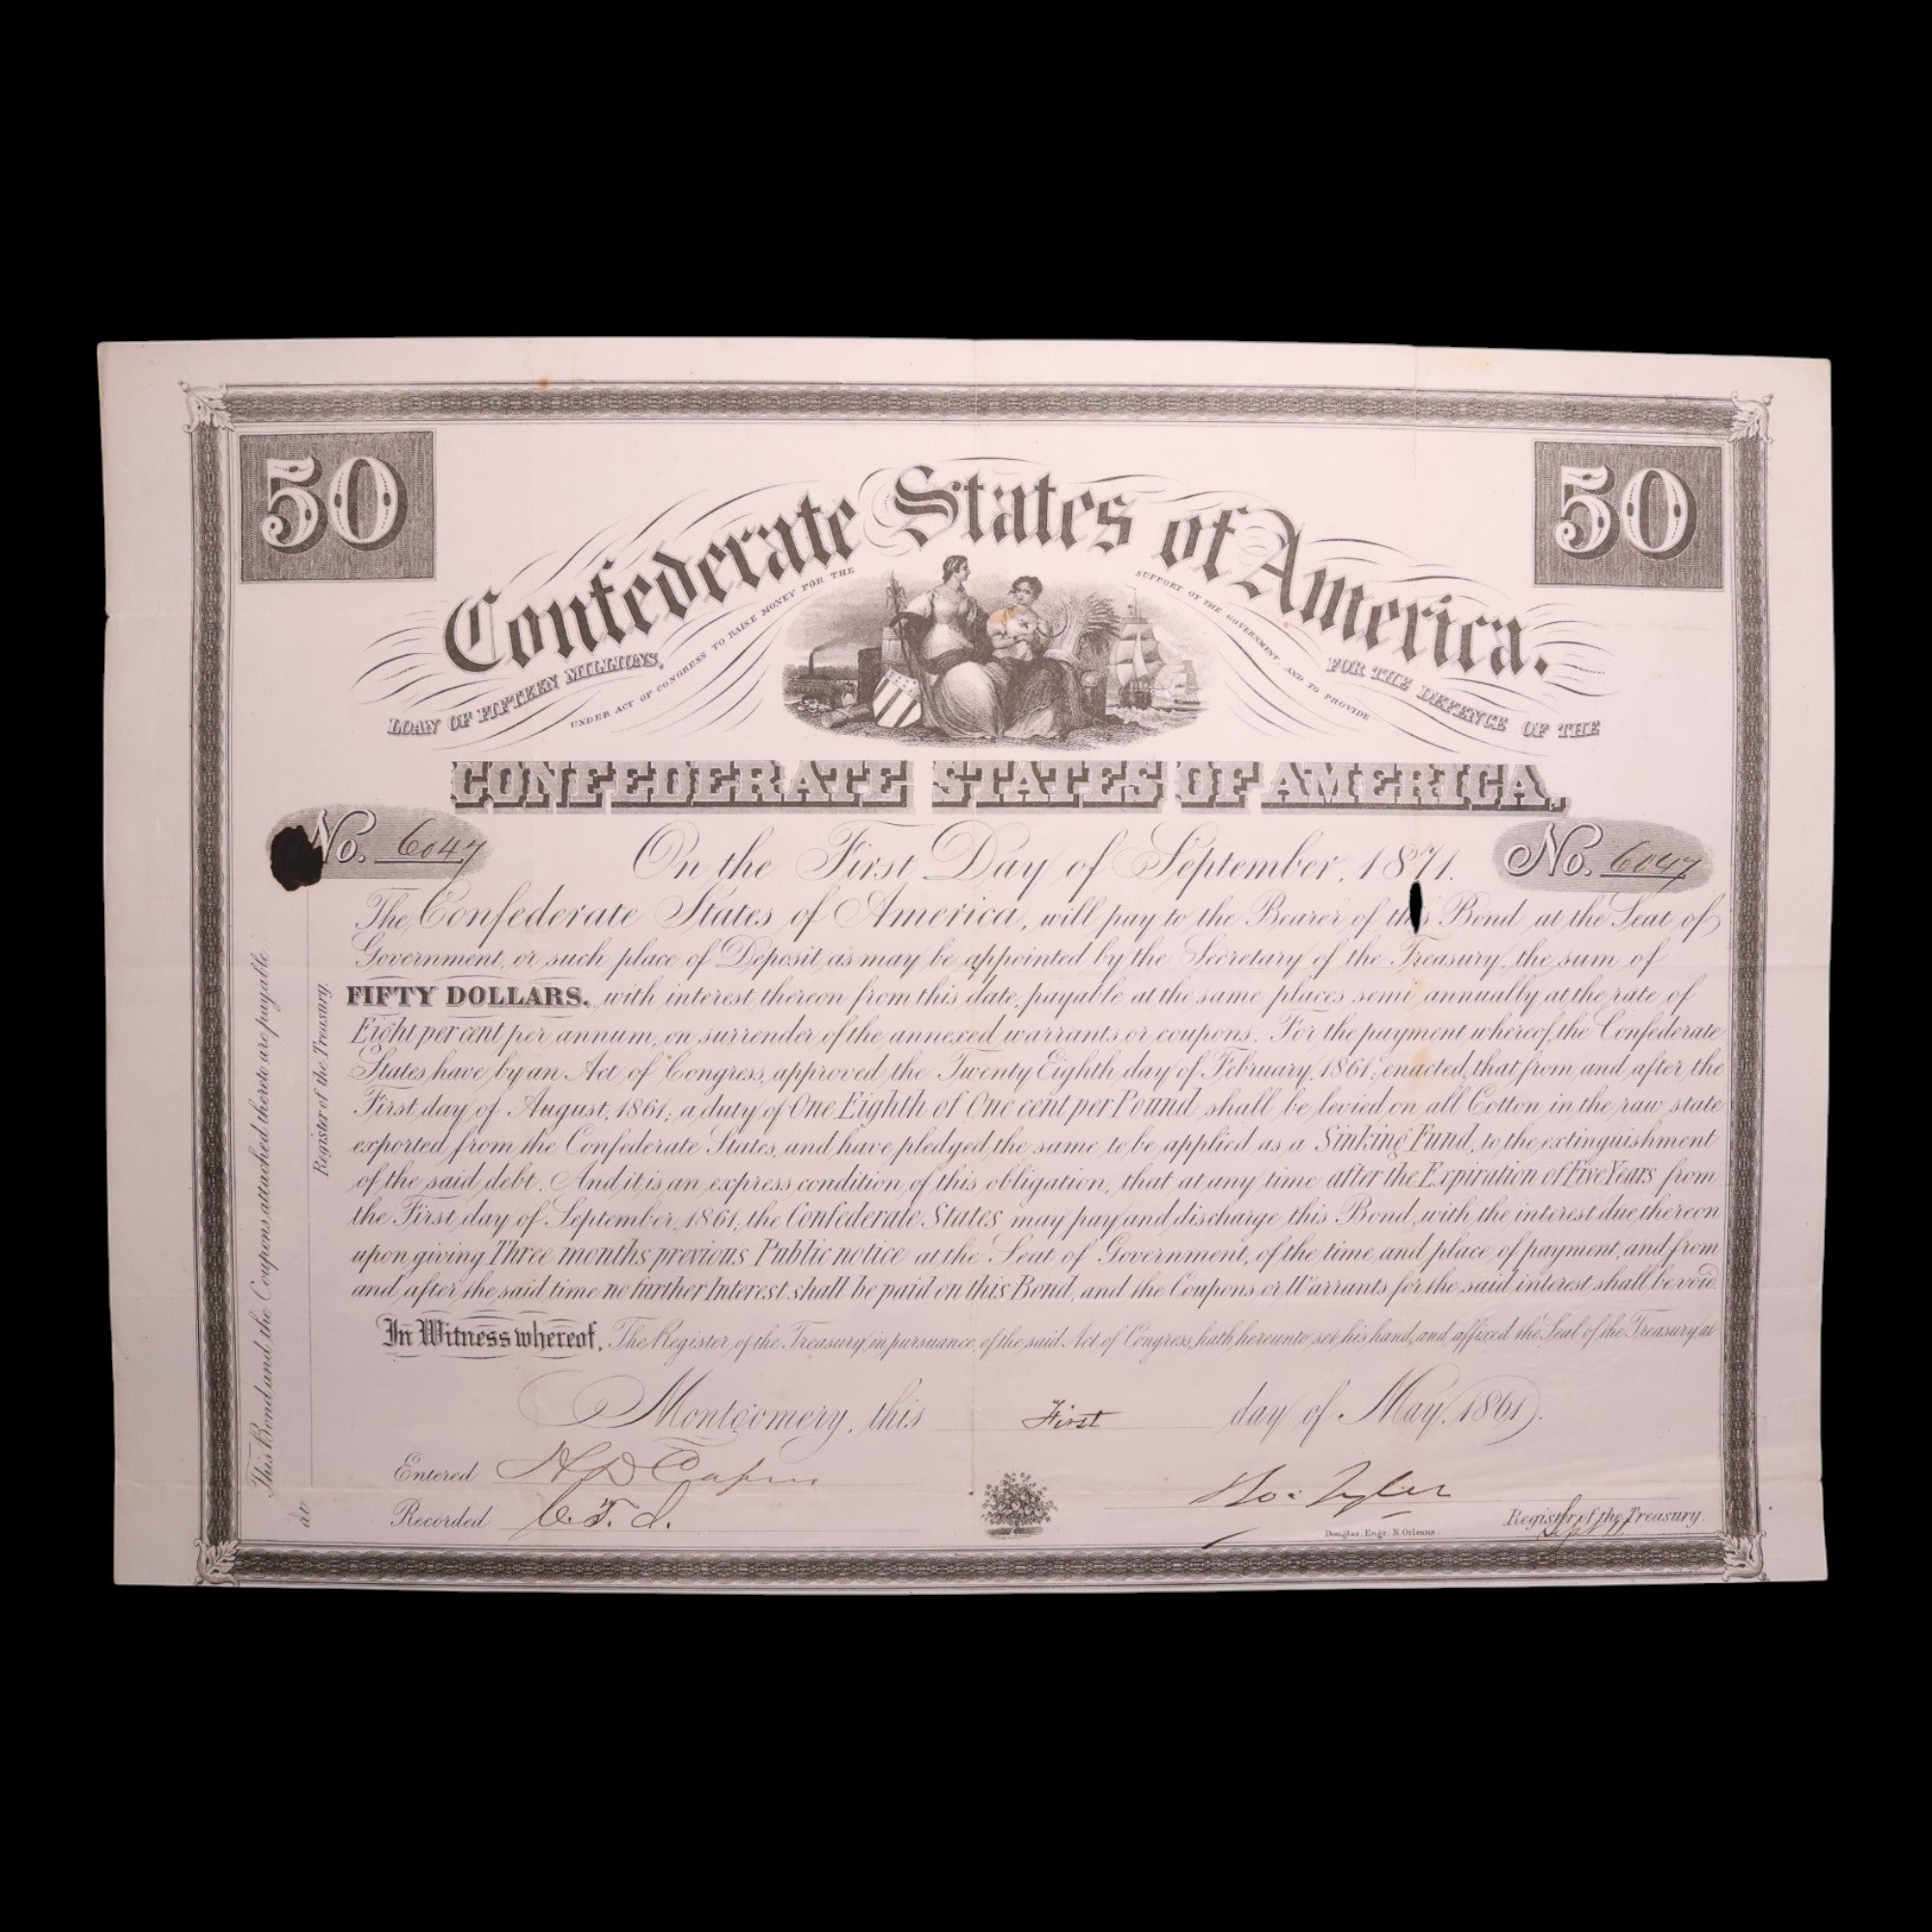 50
50
Confederate States of America.
LOAN OF FIFTEEN MILLIONS,
UNDER ACT OF CONGRESS TO RAISE MONEY FOR THE
SUPPORT OF THE GOVERNMENT, AND TO PROVIDE
FOR THE DEFENCE OF THE
CONFEDERATE STATES OF AMERICA,
No. 6047
On the First Day of September, 1871.
No. 6047
The Confederate States of America, will pay to the Bearer of this Bond at the Seat of
Government, or such place of Deposit as may be appointed by the Secretary of the Treasury, the sum of
FIFTY DOLLARS. with interest thereon from this date, payable at the same places semi annually at the rate of
Eight per cent per annum, on surrender of the annexed warrants or coupons. For the payment whereof, the Confederate
States have by an Act of Congress, approved the Twenty Eighth day of February, 1861; enacted, that from and after the
First day of August, 1861; a duty of One Eighth of One cent per Pound shall be levied on all Cotton in the raw state
exported from the Confederate States, and have pledged the same to be applied as a Sinking Fund, to the extinguishment
of the said debt. And it is an express condition of this obligation, that at any time after the Expiration of Five Years from
the First day of September, 1861, the Confederate States may pay and discharge this Bond, with the interest due thereon
upon giving Three months previous Public notice at the Seat of Government, of the time and place of payment, and from
and after the said time no further Interest shall be paid on this Bond, and the Coupons or Warrants for the said interest shall be void.
In Witness whereof, The Register of the Treasury, in pursuance of the said Act of Congress, hath hereunto set his hand, and affixed the Seal of the Treasury at
Montgomery, this First day of May, 1861.
Entered
Recorded C.T.
Tyler
Register of the Treasury.
Douglas. Engr. N. Orleans.
This Bond and the Coupons attached thereto are payable
at
Register of the Treasury.